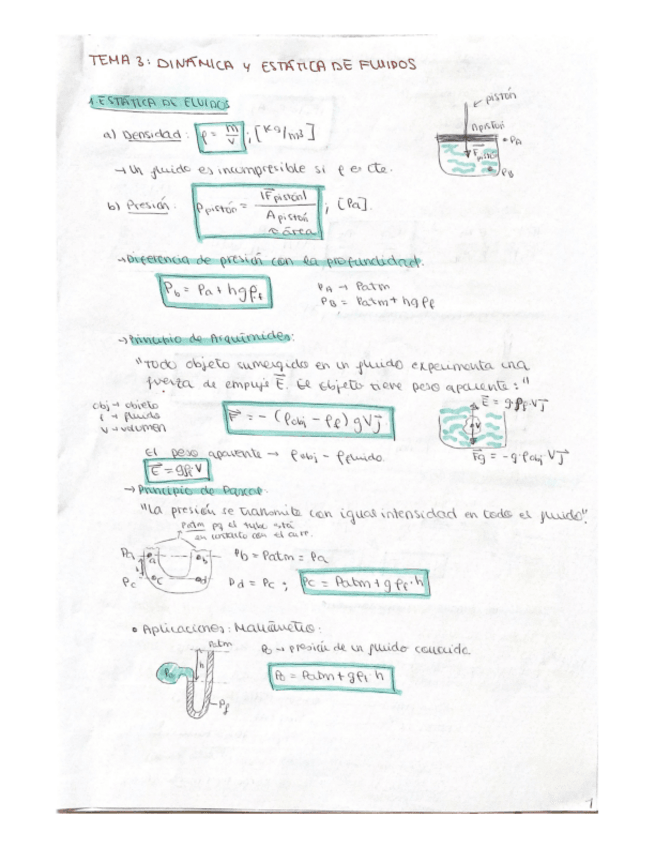 TEMA 3: DINÁMICA Y ESTÁTICA DE FLUIDOS
1. ESTÁTICA DE FLUIDOS
→ pistón
A pistón
F pistón
• PA
PB
a) Densidad: ρ = m/V ; [kg/m³]
→ Un fluido es incompresible si ρ es cte.
b) Presión: P pistón = |F⃗ pistón| / A pistón ; [Pa].
área
→ Diferencia de presión con la profundidad.
Pb = Pa + hgρf
PA → Patm
PB = Patm + hgρf
→ Principio de Arquímides:
"Todo objeto sumergido en un fluido experimenta una
fuerza de empuje E⃗. El objeto tiene peso aparente:"
obj → objeto
f → fluido
V → volumen
P⃗ = -(ρobj - ρf) g V j⃗
E⃗ = g·ρf·V j⃗
Fg = -g·ρobj·V j⃗
El peso aparente → ρobj - ρfluido.
E⃗ = gρf V
→ Principio de Pascal
"La presión se transmite con igual intensidad en todo el fluido".
Patm pq el tubo está
en contacto con el aire.
Pa
a
b
Pb = Patm = Pa
Pc
c
d
Pd = Pc ; Pc = Patm + gρf·h
• Aplicaciones: Manómetro:
Patm
h
Po
ρf
Po → presión de un fluido conocida.
Po = Patm + gρf h
1